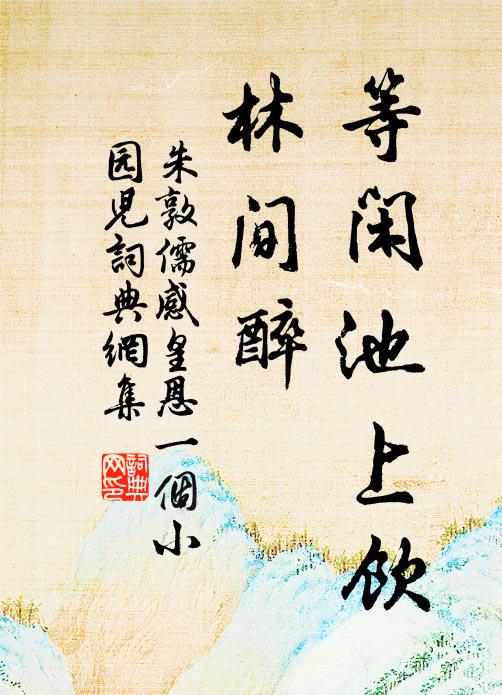 等闲池上饮
林间醉
朱敦儒感皇恩一個小
园児詞典網集
詞典
网印